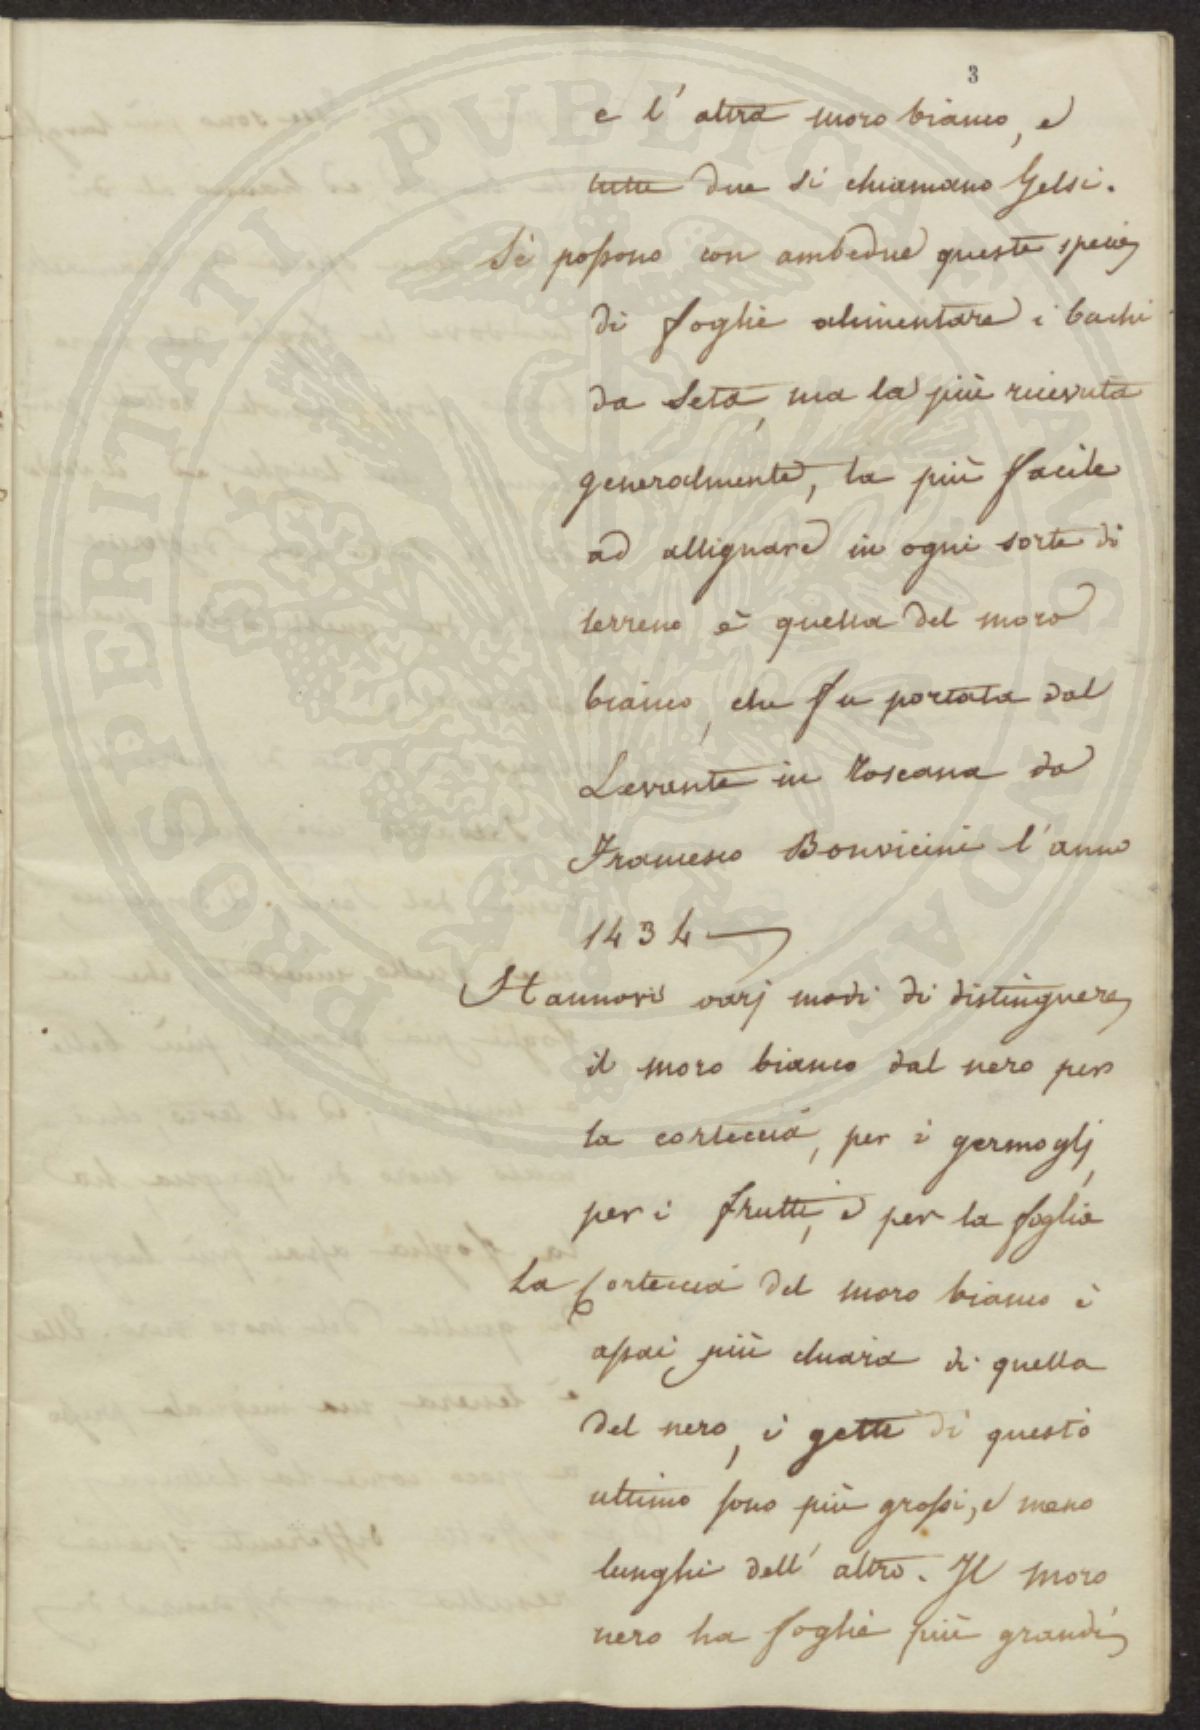 3
e l'altra moro bianco, e
tutte due si chiamano Gelsi.
Si possono con ambedue queste specie
di foglie alimentare i bachi
da Seta, ma la più ricevuta
generalmente, la più facile
ad allignare in ogni sorte di
terreno è quella del moro
bianco, che fu portata dal
Levante in Toscana da
Francesco Bonvicini l'anno
1434
Hannovi varj modi di distinguere
il moro bianco dal nero per
la corteccia, per i germoglj,
per i frutti, e per la foglia
La Corteccia del moro bianco è
assai più chiara di quella
del nero, i getti di questo
ultimo sono più grossi, e meno
lunghi dell'altro. Il moro
nero ha foglie più grandi,
PROSPERITATI PUBLICAE AUGENDAE